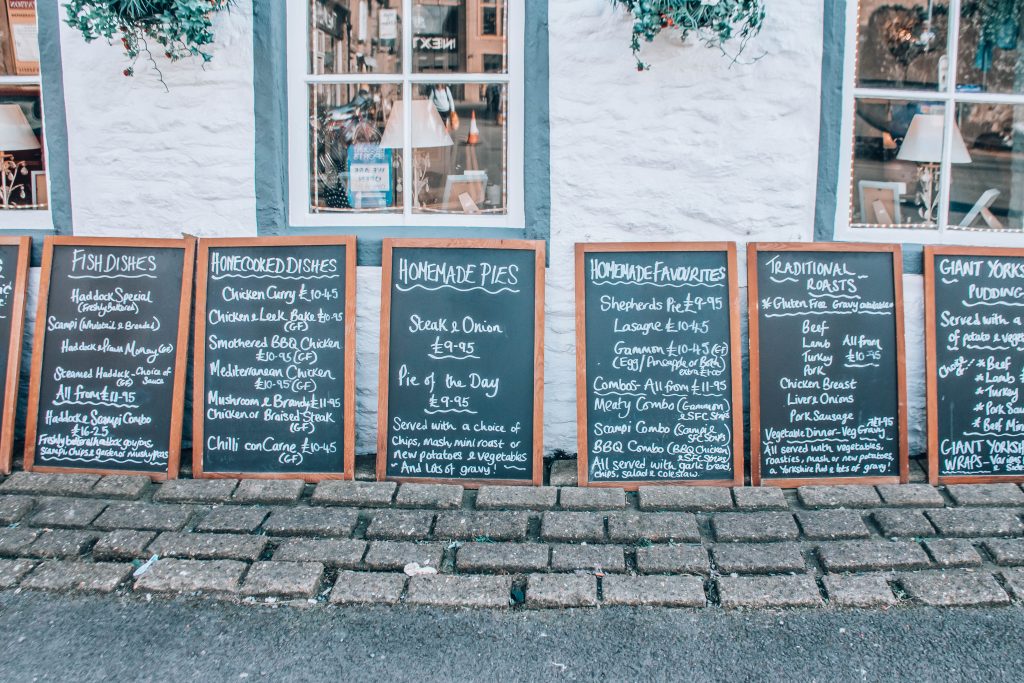 NEXT
WE ARE
OPEN
FISH DISHES
Haddock Special
(Freshly Battered)
Scampi (Whitetail & Breaded)
Haddock & Prawn Mornay (GF)
Steamed Haddock - Choice of
Sauce
All from £11-95
Haddock & Scampi Combo
£16-25
Freshly battered haddock goujons
Scampi, chips & garden or mushy peas
HONECOOKED DISHES
Chicken Curry £10-45
Chicken & Leek Bake £10-95
(GF)
Smothered BBQ Chicken
£10-95 (GF)
Mediterranean Chicken
£10-95 (GF)
Mushroom & Brandy £11-95
Chicken or Braised Steak
(GF)
Chilli con Carne £10-45
HOMEMADE PIES
Steak & Onion
£9-95
Pie of the Day
£9-95
Served with a choice of
Chips, mash, mini roast or
new potatoes & vegetables
And lots of gravy!
HOMEMADE FAVOURITES
Shepherds Pie £9-95
Lasagne £10-45
Gammon £10-45 (GF)
(Egg/Pineapple or Both)
extra £1
Combos - All from £11-95
Meaty Combo (Gammon
& SFC Strips)
Scampi Combo (Scampi &
SFC Strips)
BBQ Combo (BBQ Chicken
& SFC Strips)
All served with garlic bread,
chips, salad & coleslaw.
TRADITIONAL
ROASTS
*Gluten Free Gravy available
Beef
Lamb All from
Turkey £10-95
Pork
Chicken Breast
Liver & Onions
Pork Sausage
Vegetable Dinner - Veg Gravy
All served with vegetables,
roasties, mash or new potatoes,
a Yorkshire Pud & lots of gravy!
GIANT YORKS
PUDDING
Served with a
of potato & veget
*Beef
*Lamb
*Turkey
*Pork Saus
*Beef Min
GIANT YORKSH
WRAPS